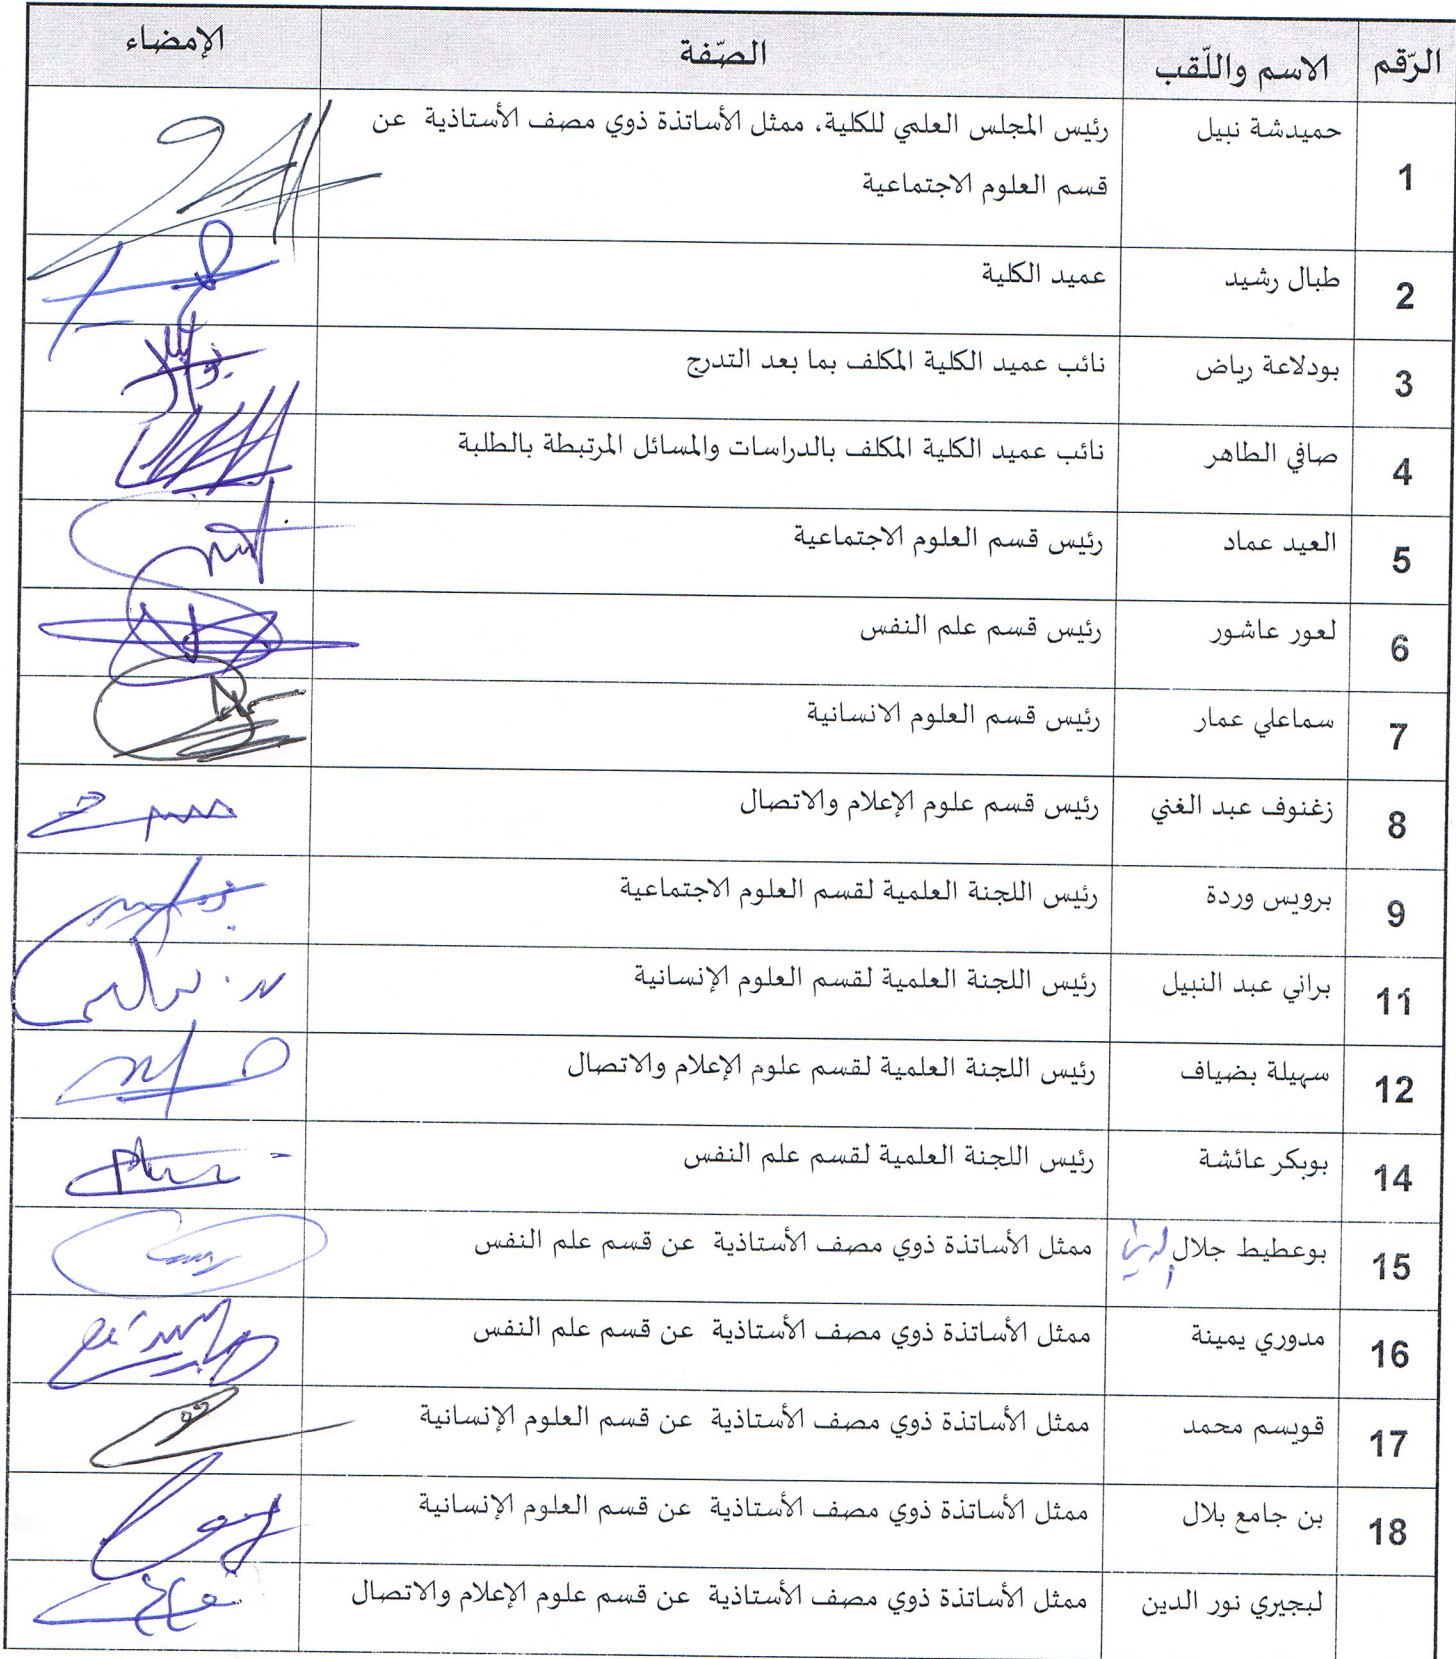 الرّقم الاسم واللّقب الصّفة الإمضاء
1 حميدشة نبيل رئيس المجلس العلمي للكلية، ممثل الأساتذة ذوي مصف الأستاذية عن
قسم العلوم الاجتماعية
2 طبال رشيد عميد الكلية
3 بودلاعة رياض نائب عميد الكلية المكلف بما بعد التدرج
4 صافي الطاهر نائب عميد الكلية المكلف بالدراسات والمسائل المرتبطة بالطلبة
5 العيد عماد رئيس قسم العلوم الاجتماعية
6 لعور عاشور رئيس قسم علم النفس
7 سماعلي عمار رئيس قسم العلوم الانسانية
8 زغنوف عبد الغني رئيس قسم علوم الإعلام والاتصال
9 برويس وردة رئيس اللجنة العلمية لقسم العلوم الاجتماعية
11 براني عبد النبيل رئيس اللجنة العلمية لقسم العلوم الإنسانية
12 سهيلة بضياف رئيس اللجنة العلمية لقسم علوم الإعلام والاتصال
14 بوبكر عائشة رئيس اللجنة العلمية لقسم علم النفس
15 بوعطيط جلال ممثل الأساتذة ذوي مصف الأستاذية عن قسم علم النفس
16 مدوري يمينة ممثل الأساتذة ذوي مصف الأستاذية عن قسم علم النفس
17 قويسم محمد ممثل الأساتذة ذوي مصف الأستاذية عن قسم العلوم الإنسانية
18 بن جامع بلال ممثل الأساتذة ذوي مصف الأستاذية عن قسم العلوم الإنسانية
لبجيري نور الدين ممثل الأساتذة ذوي مصف الأستاذية عن قسم علوم الإعلام والاتصال